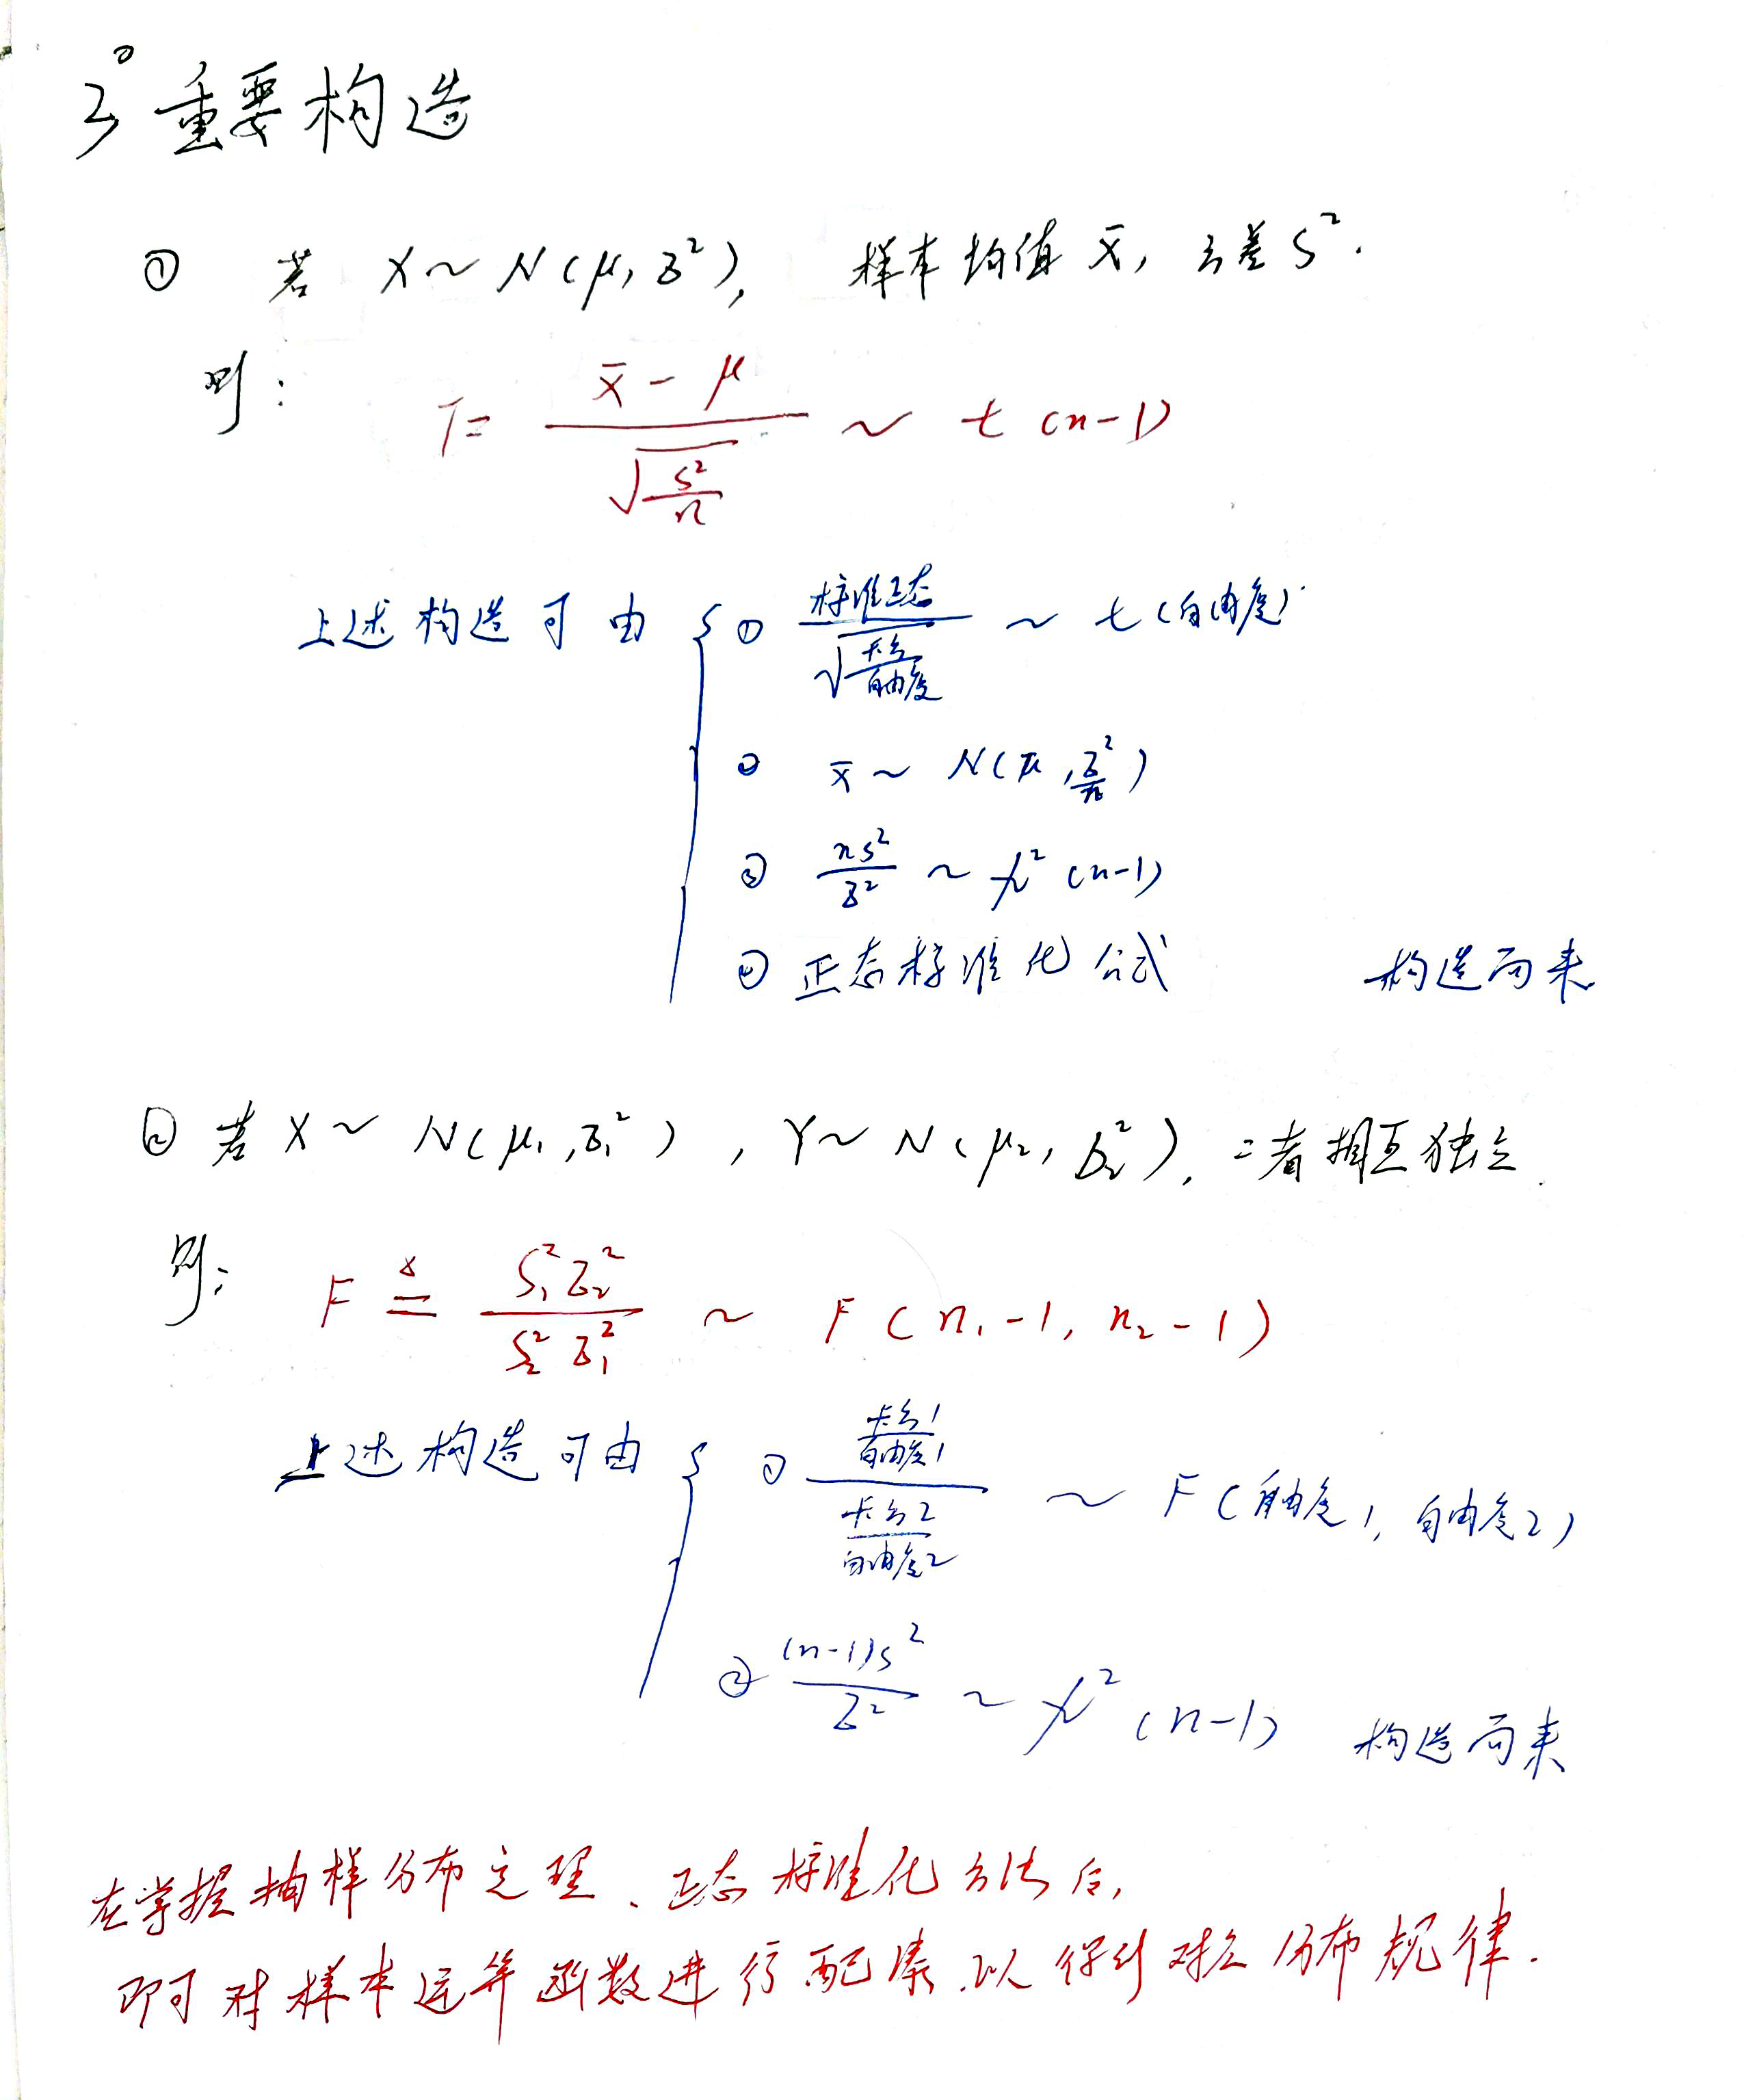 3° 重要构造
① 若 X ~ N(μ, σ²), 样本均值 x̄, 方差 S².
则: T = (x̄ - μ) / √(S²/n) ~ t (n-1)
上述构造可由 { ① 标准正态 / √(卡方/自由度) ~ t (自由度)
② x̄ ~ N(μ, σ²/n)
③ nS²/σ² ~ χ² (n-1)
④ 正态标准化公式 构造而来
② 若 X ~ N(μ₁, σ₁²), Y ~ N(μ₂, σ₂²), 二者相互独立.
则: F ≜ S₁²σ₂² / S₂²σ₁² ~ F (n₁-1, n₂-1)
上述构造可由 { ① (卡方1/自由度1) / (卡方2/自由度2) ~ F (自由度1, 自由度2)
② (n-1)S²/σ² ~ χ² (n-1) 构造而来
在掌握抽样分布定理、正态标准化方法后,
即可对样本运算函数进行配凑.以得到对应分布规律.